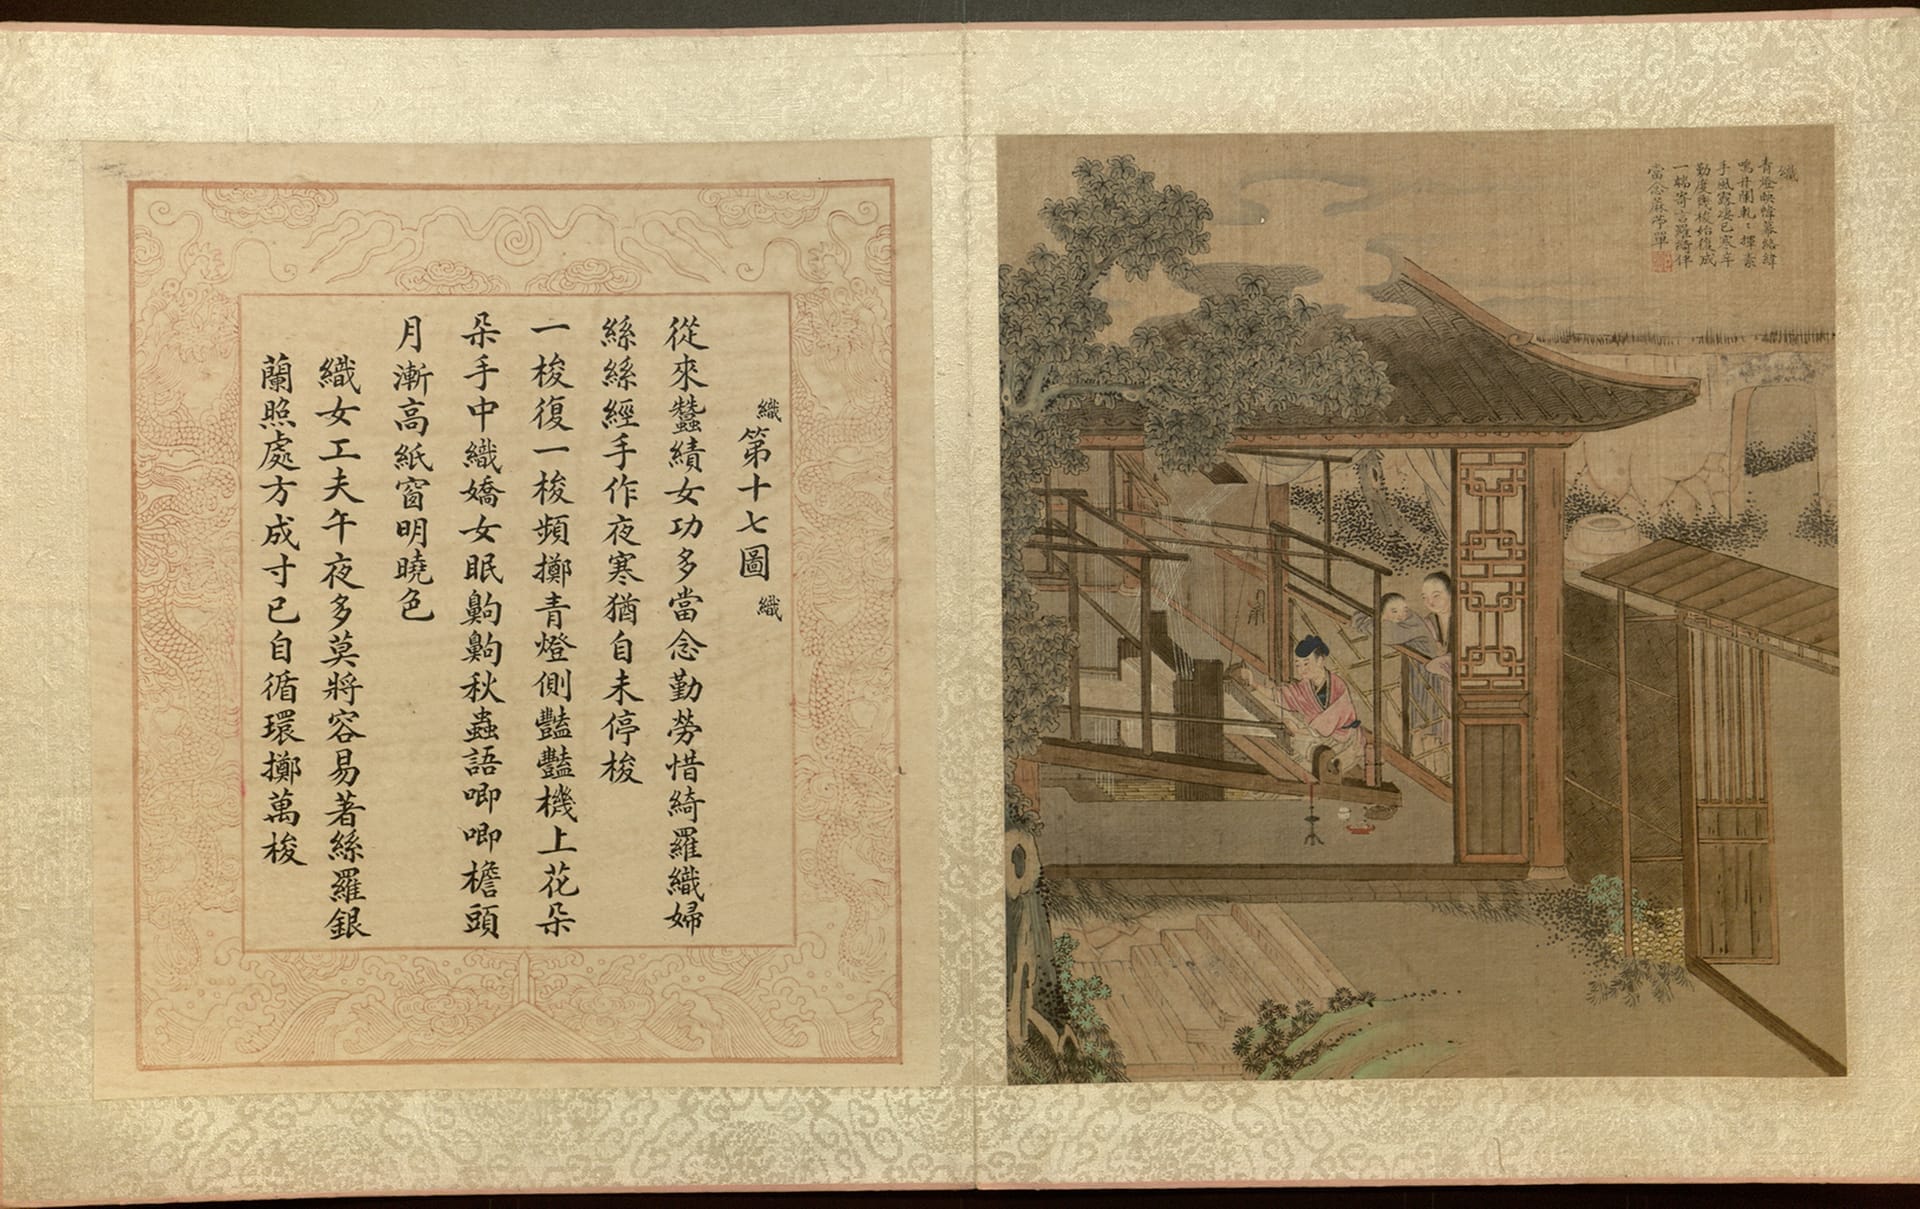 織
青燈映幃幕絡緯
鳴井闌軋〻揮素
手風露凄已寒辛
勤度幾梭始復成
一端寄言羅綺伴
當念麻苧單
織
第十七圖
織
從來蠶績女功多當念勤勞惜綺羅織婦
絲絲經手作夜寒猶自未停梭
一梭復一梭頻擲青燈側豔豔機上花朵
朵手中織嬌女眠齁齁秋蟲語唧唧檐頭
月漸高紙窗明曉色
織女工夫午夜多莫將容易著絲羅銀
蘭照處方成寸已自循環擲萬梭